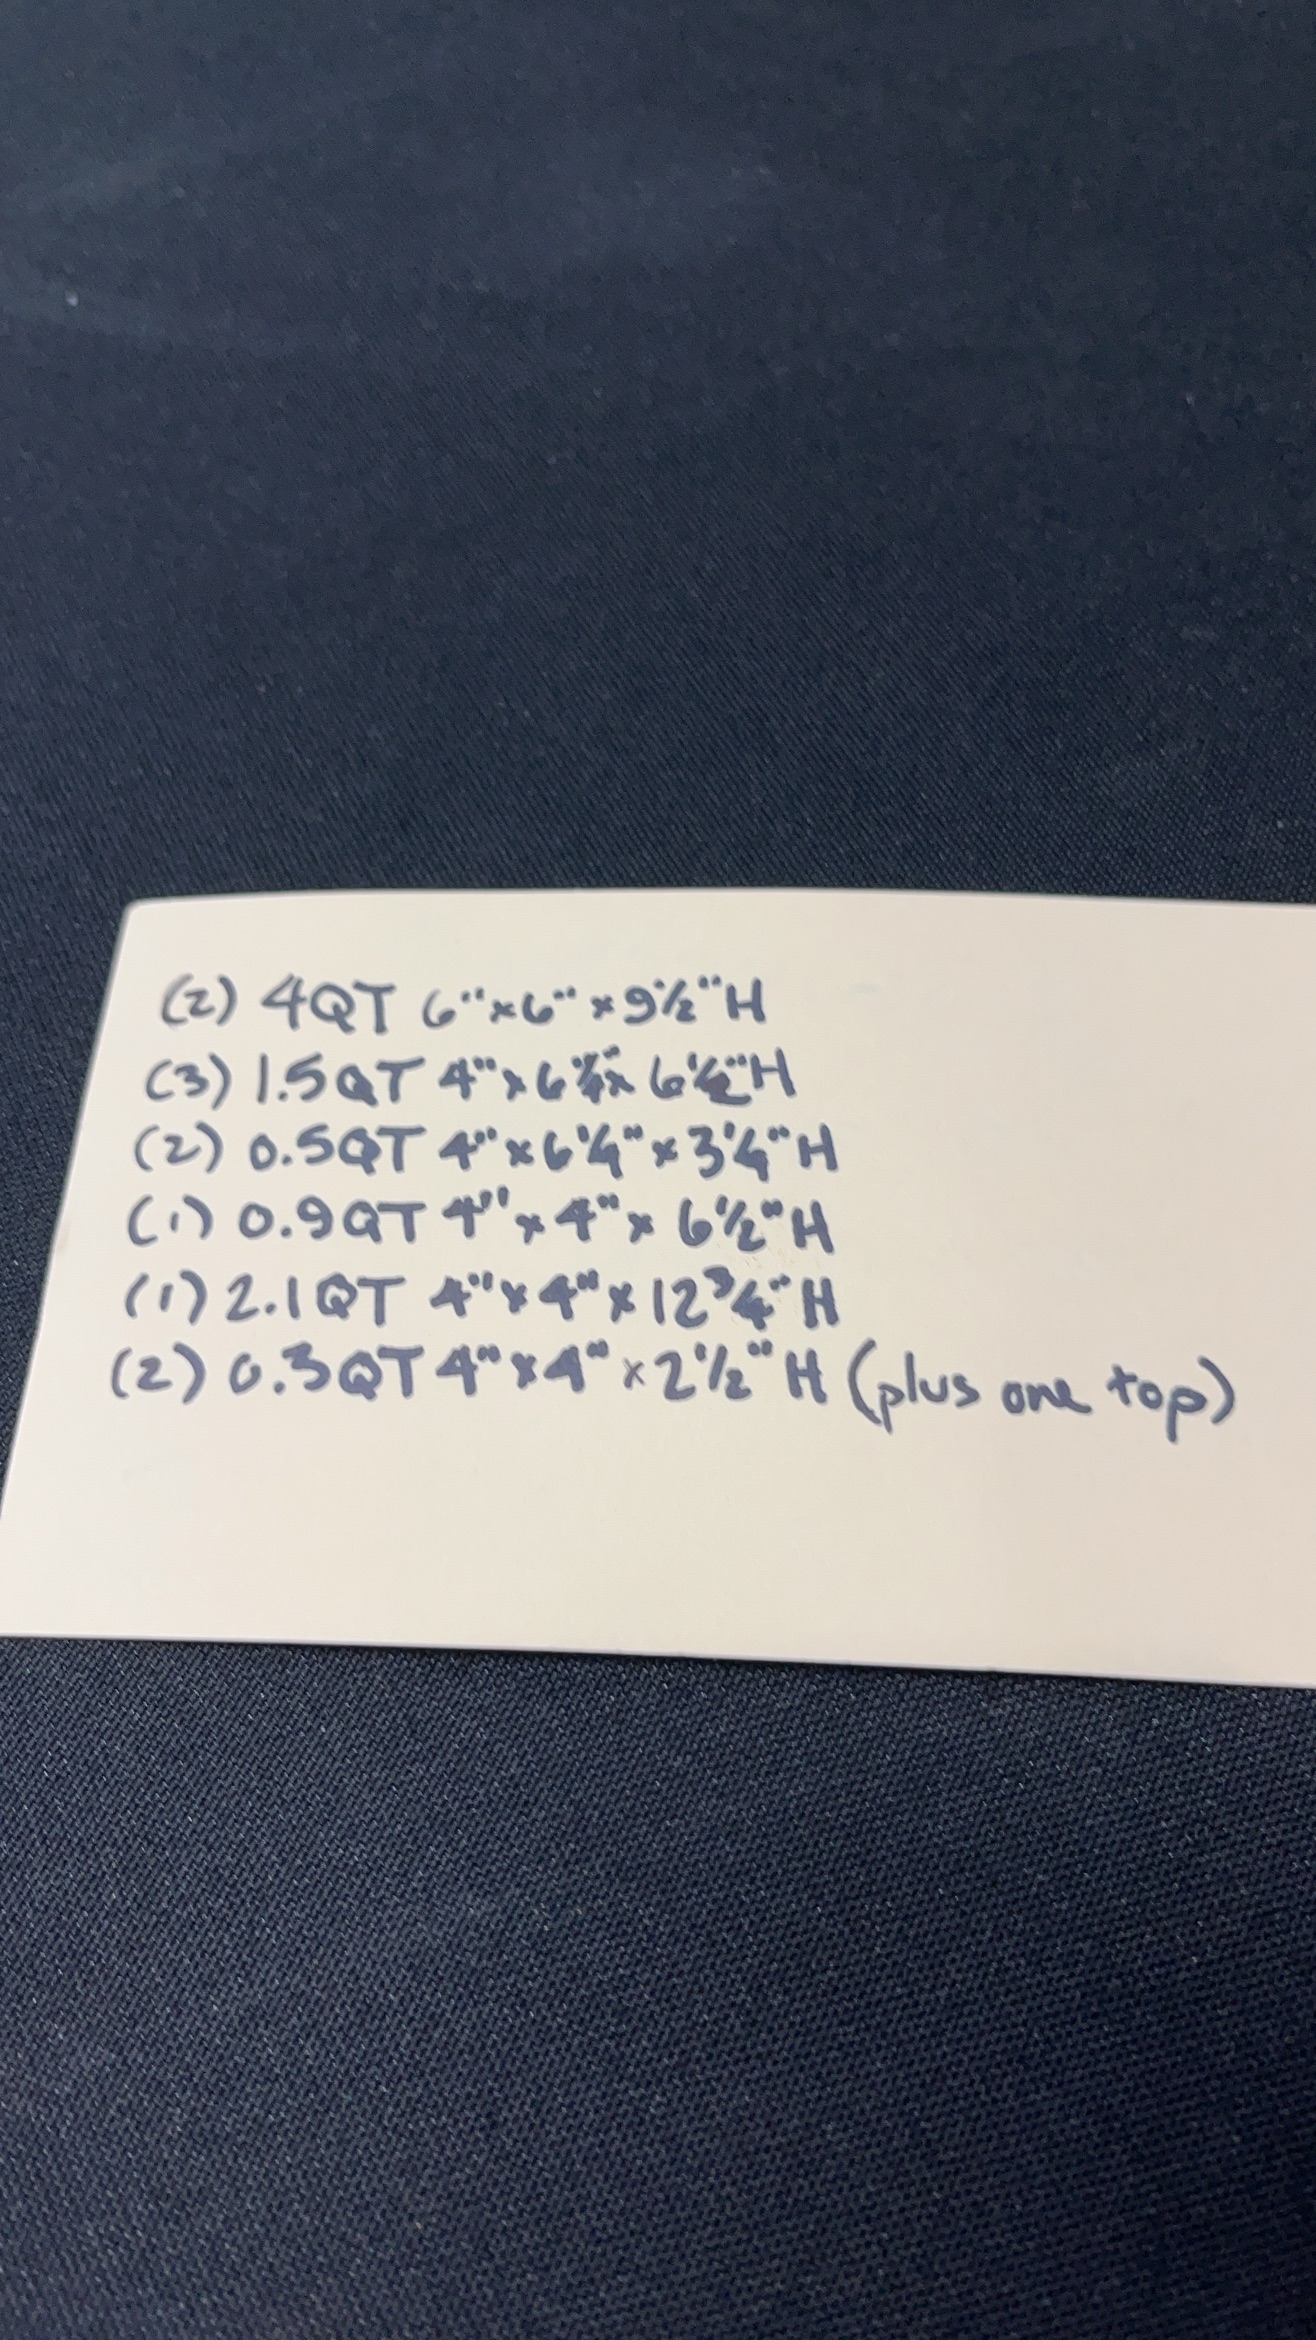 (2) 4QT 6" x 6" x 9 1/2" H
(3) 1.5QT 4" x 6 1/4" x 6 1/2" H
(2) 0.5QT 4" x 6 1/4" x 3 1/4" H
(1) 0.9QT 4" x 4" x 6 1/2" H
(1) 2.1QT 4" x 4" x 12 3/4" H
(2) 0.3QT 4" x 4" x 2 1/2" H (plus one top)